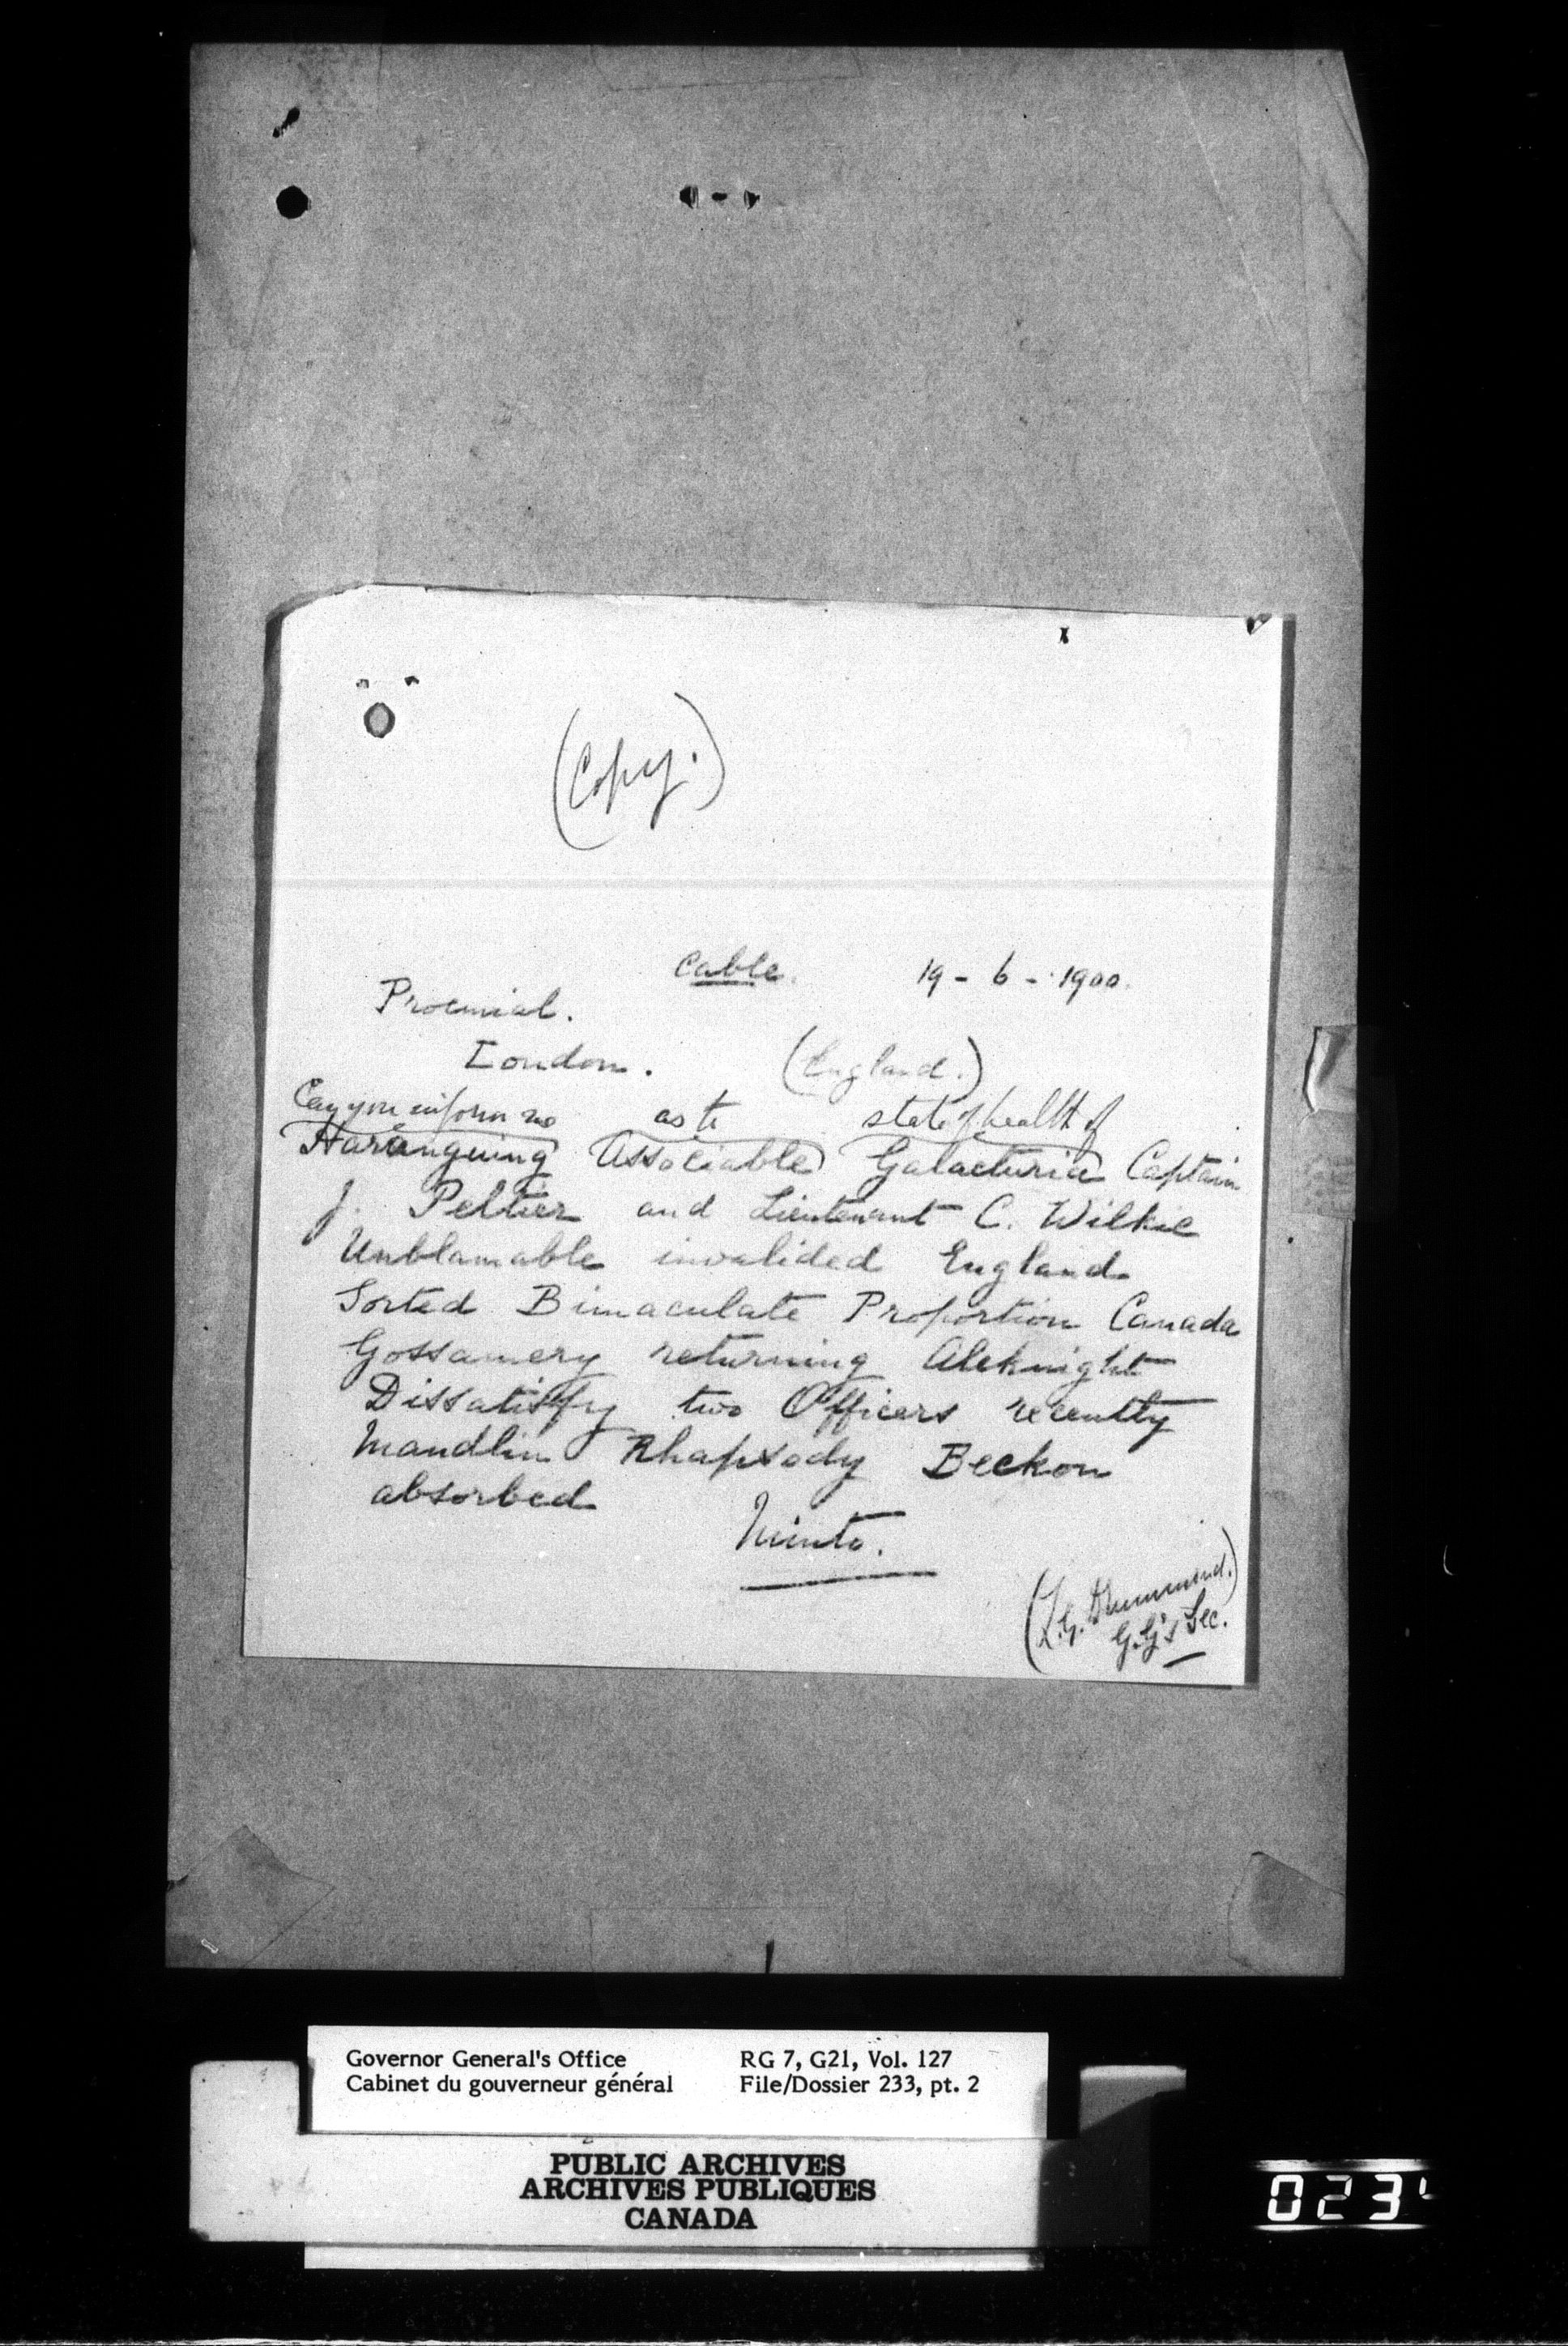 (Copy.)
Cable. 19 - 6 - 1900.
Proemial.
London. (England.)
Can you inform me as to state of health of
Haranguing Associable Galacturia Captain
J. Peltier and Lieutenant C. Wilkie
Unblamable invalided England
Sorted Bimaculate Proportion Canada
Gossamery returning Aleknight
Dissatisfy two Officers recently
Maudlin Rhapsody Beckon
absorbed
Minto.
(L.G. Drummond.)
G.G's Sec.
Governor General's Office RG 7, G21, Vol. 127
Cabinet du gouverneur général File/Dossier 233, pt. 2
PUBLIC ARCHIVES
ARCHIVES PUBLIQUES
CANADA
023